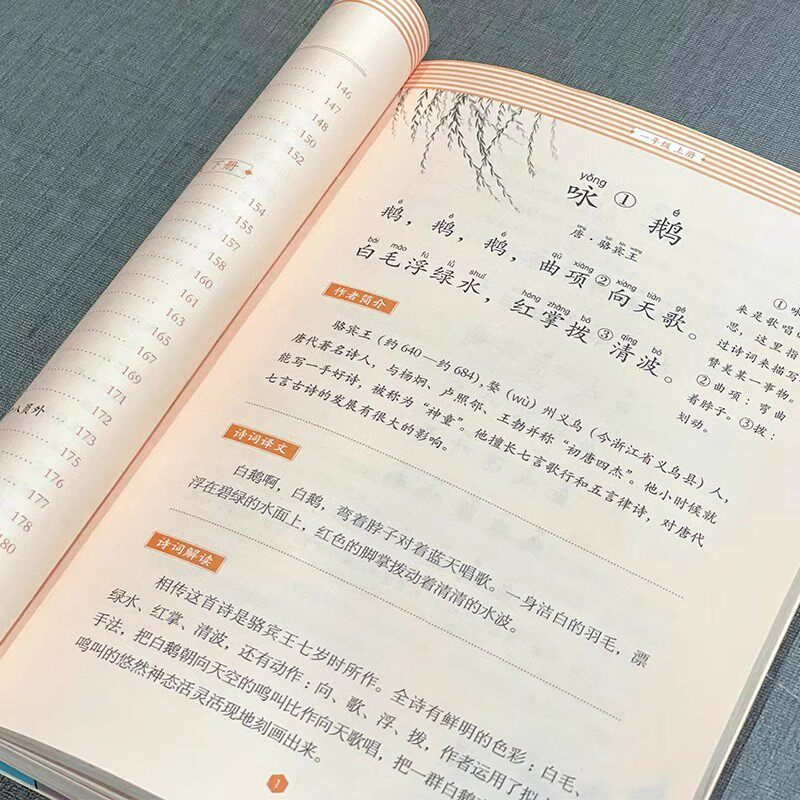 146
147
148
150
152
下册
154
155
157
158
160
161
163
165
167
169
171
172
人员外
173
175
176
177
178
180
一年级 上册
yǒng é
咏①鹅
唐·骆宾王
é é é qū xiàng xiàng tiān gē
鹅，鹅，鹅，曲项②向天歌。
bái máo fú lǜ shuǐ hóng zhǎng bō qīng bō
白毛浮绿水，红掌拨③清波。
作者简介
骆宾王（约 640—约 684），婺（wù）州义乌（今浙江省义乌县）人，
唐代著名诗人，与杨炯、卢照邻、王勃并称“初唐四杰”。他小时候就
能写一手好诗，被称为“神童”。他擅长七言歌行和五言律诗，对唐代
七言古诗的发展有很大的影响。
诗词译文
白鹅啊，白鹅，弯着脖子对着蓝天唱歌。一身洁白的羽毛，漂
浮在碧绿的水面上，红色的脚掌拨动着清清的水波。
诗词解读
相传这首诗是骆宾王七岁时所作。全诗有鲜明的色彩：白毛、
绿水、红掌、清波，还有动作：向、歌、浮、拨，作者运用了拟
手法，把白鹅朝向天空的鸣叫比作向天歌唱，把一群白鹅
鸣叫的悠然神态活灵活现地刻画出来。
① 咏
来是歌唱
思，这里指
过诗词来描写
赞美某一事物。
② 曲项：弯曲
着脖子。③拨：
划动。
1